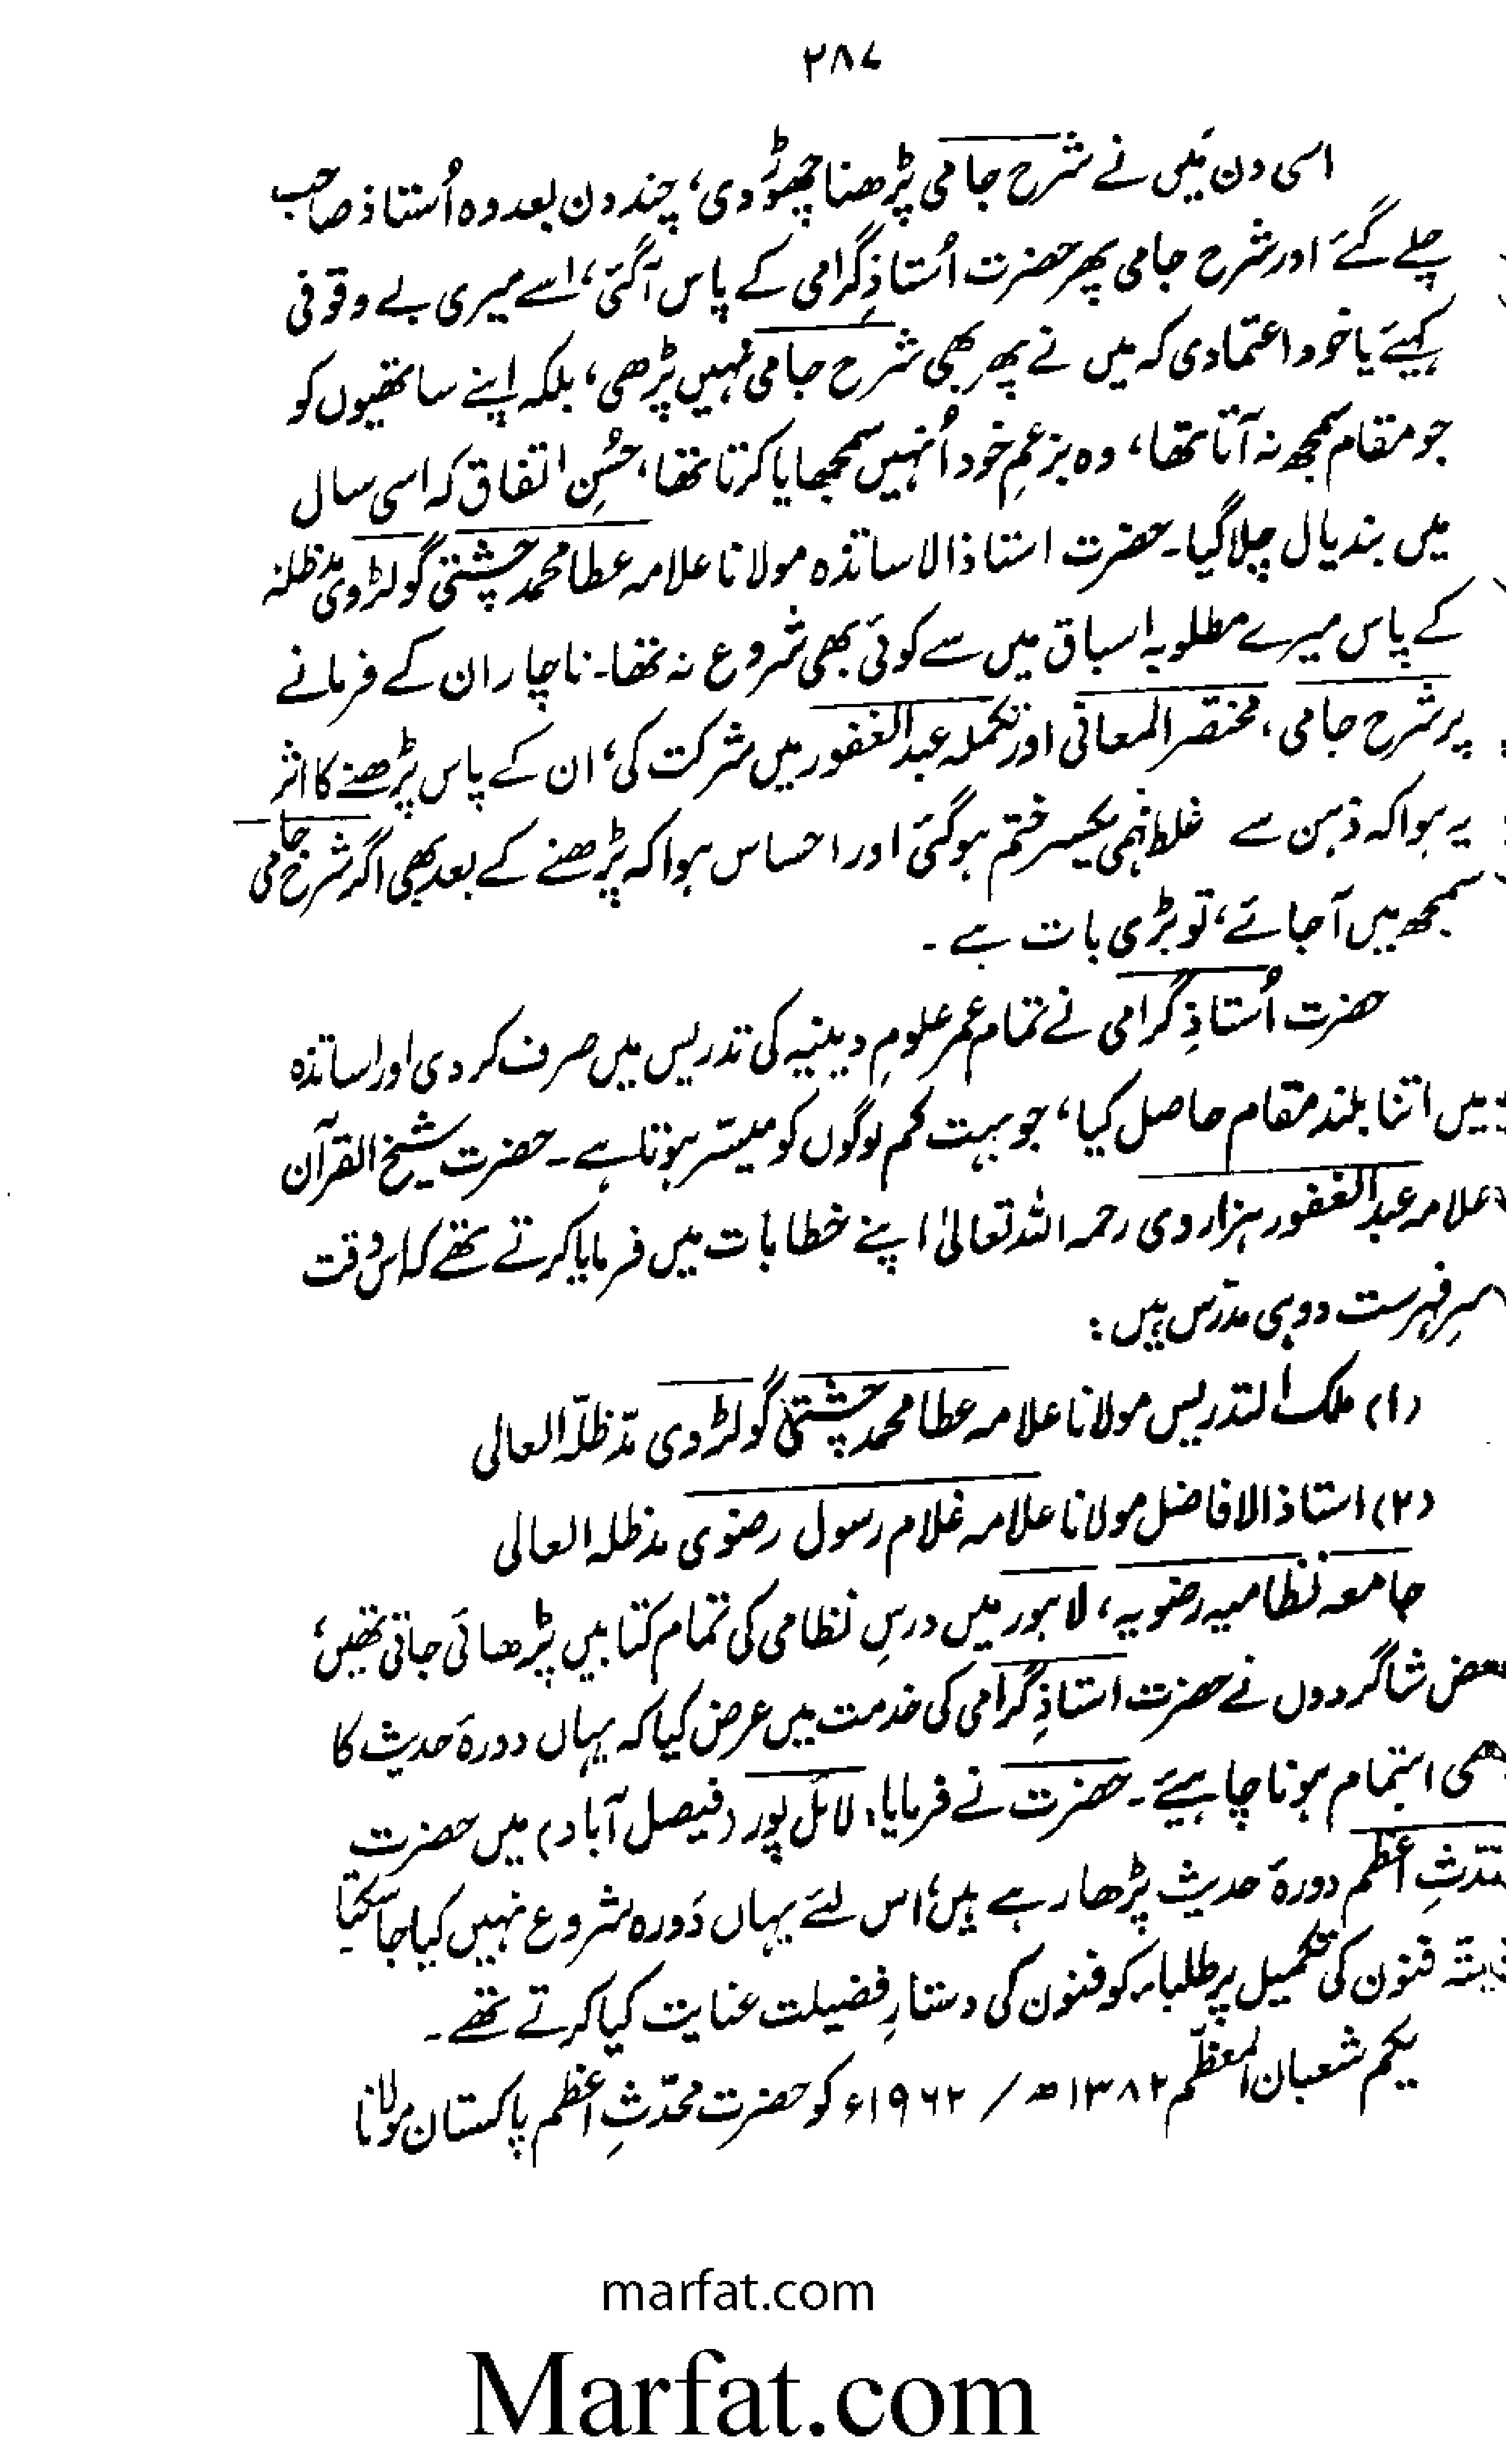 ۲۸۷
اسی دن مَیں نے شرح جامی پڑھنا چھوڑ دی، چند دن بعد وہ اُستاذ صاحب
چلے گئے اور شرح جامی پھر حضرت اُستاذِ گرامی کے پاس آگئی، اسے میری بے وقوفی
کہیئے یا خود اعتمادی کہ میں نے پھر بھی شرح جامی نہیں پڑھی، بلکہ اپنے ساتھیوں کو
جو مقام سمجھ نہ آتا تھا، وہ بزعمِ خود اُنہیں سمجھایا کرتا تھا، حُسنِ اتفاق کہ اسی سال
میں بندیال چلا گیا۔ حضرت استاذ الاساتذہ مولانا علامہ عطا محمد چشتی گولڑوی مدظلہ
کے پاس میرے مطلوبہ اسباق میں سے کوئی بھی شروع نہ تھا۔ ناچار ان کے فرمانے
پر شرح جامی، مختصر المعانی اور تکملہ عبدالغفور میں شرکت کی، ان کے پاس پڑھنے کا اثر
یہ ہوا کہ ذہن سے غلط فہمی یکسر ختم ہو گئی اور احساس ہوا کہ پڑھنے کے بعد بھی اگر شرح جامی
سمجھ میں آ جائے، تو بڑی بات ہے۔
حضرت اُستاذِ گرامی نے تمام عمر علومِ دینیہ کی تدریس میں صرف کر دی اور اساتذہ
میں اتنا بلند مقام حاصل کیا، جو بہت کم لوگوں کو میسّر ہوتا ہے۔ حضرت شیخ القرآن
علامہ عبدالغفور ہزاروی رحمہ اللہ تعالیٰ اپنے خطابات میں فرمایا کرتے تھے کہ اس وقت
سرِ فہرست دو ہی مدرّس ہیں:
(۱) ملک التدریس مولانا علامہ عطا محمد چشتی گولڑوی مدّظلّہ العالی
(۲) استاذ الافاضل مولانا علامہ غلام رسول رضوی مدظلہ العالی
جامعہ نظامیہ رضویہ، لاہور میں درسِ نظامی کی تمام کتابیں پڑھائی جاتی تھیں،
بعض شاگردوں نے حضرت استاذِ گرامی کی خدمت میں عرض کیا کہ یہاں دورۂ حدیث کا
بھی اہتمام ہونا چاہیئے۔ حضرت نے فرمایا: لائل پور (فیصل آباد) میں حضرت
محدّثِ اعظم دورۂ حدیث پڑھا رہے ہیں، اس لئے یہاں دَورہ شروع نہیں کیا جا سکتا
البتّہ فنون کی تکمیل پر طلباء کو فنون کی دستارِ فضیلت عنایت کیا کرتے تھے۔
یکم شعبان المعظّم ۱۳۸۲ھ / ۱۹۶۲ء کو حضرت محدّثِ اعظم پاکستان مولانا
marfat.com
Marfat.com